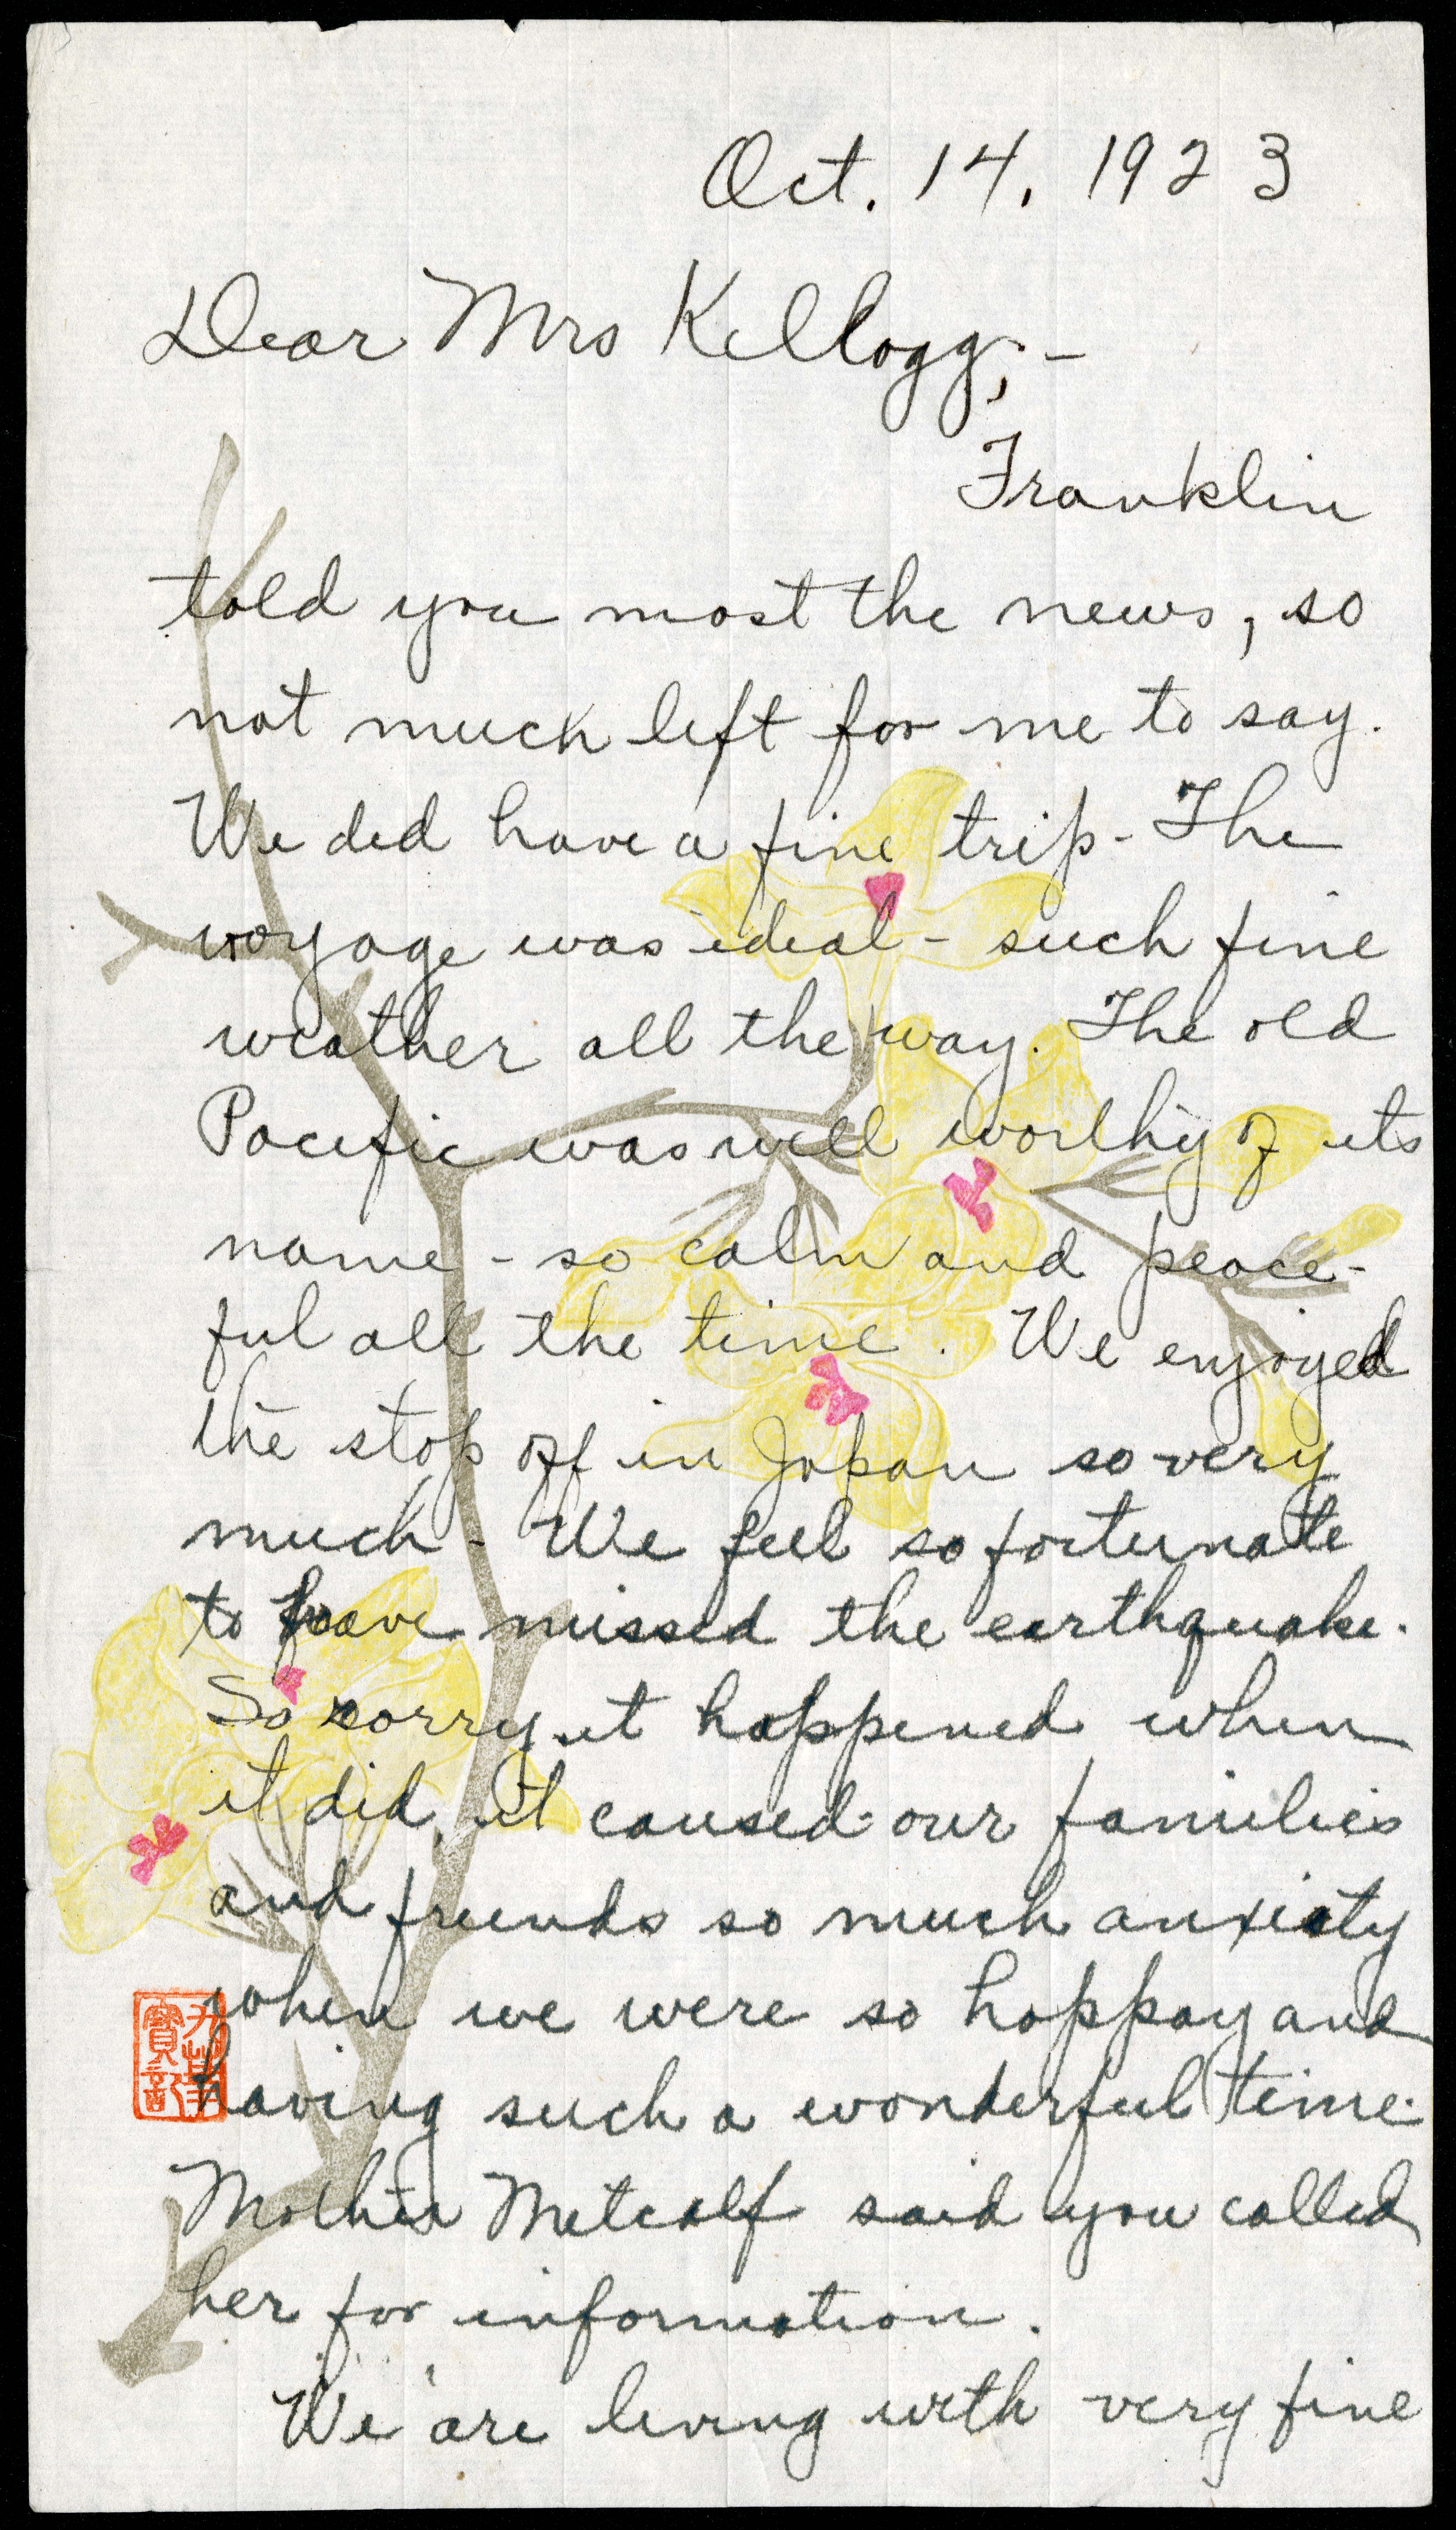 Oct. 14, 1923
Dear Mrs Kellogg,-
Franklin
told you most the news, so
not much left for me to say.
We did have a fine trip - The
voyage was ideal - such fine
weather all the way. The old
Pacific was well worthy of its
name - so calm and peace-
ful all the time. We enjoyed
the stop off in Japan so very
much - We feel so fortunate
to have missed the earthquake.
So sorry it happened when
it did, it caused our families
and friends so much anxiety
when we were so happay and
having such a wonderful time.
Mother Metcalf said you called
her for information.
We are living with very fine